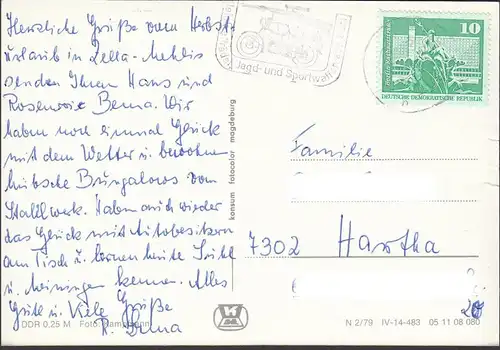 Herzliche Grüße vom Herbst-
urlaub in Zella-Mehlis
senden Ihnen Hans und
Rosemarie Bema. Wir
haben noch einmal Glück
mit dem Wetter u. bewohnen
hübsche Bungalows vom
Stahlwerk. Haben auch wieder
das Glück mit Autobesitzern
am Tisch u. lernen heute Suhl
u. Meiningen kennen. Alles
Gute u. Viele Grüße
R. Bema
Jagd- und Sportwaffen
10
DEUTSCHE DEMOKRATISCHE REPUBLIK
Familie
7302 Hartha
konsum fotocolor magdeburg
DDR 0,25 M Foto:
N 2/79 IV-14-483 05 11 08 080